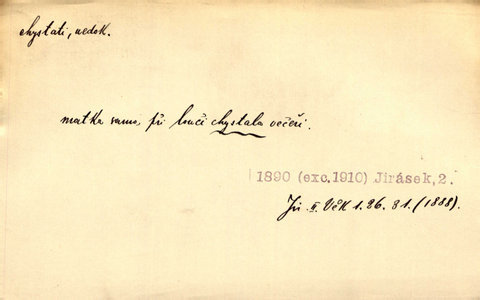 chystati, nedok.
matka sama při louči chystala večeři.
1890 (exc.1910) Jirásek,2.
Jir. II. Věk 1. 86. 31. (1888).